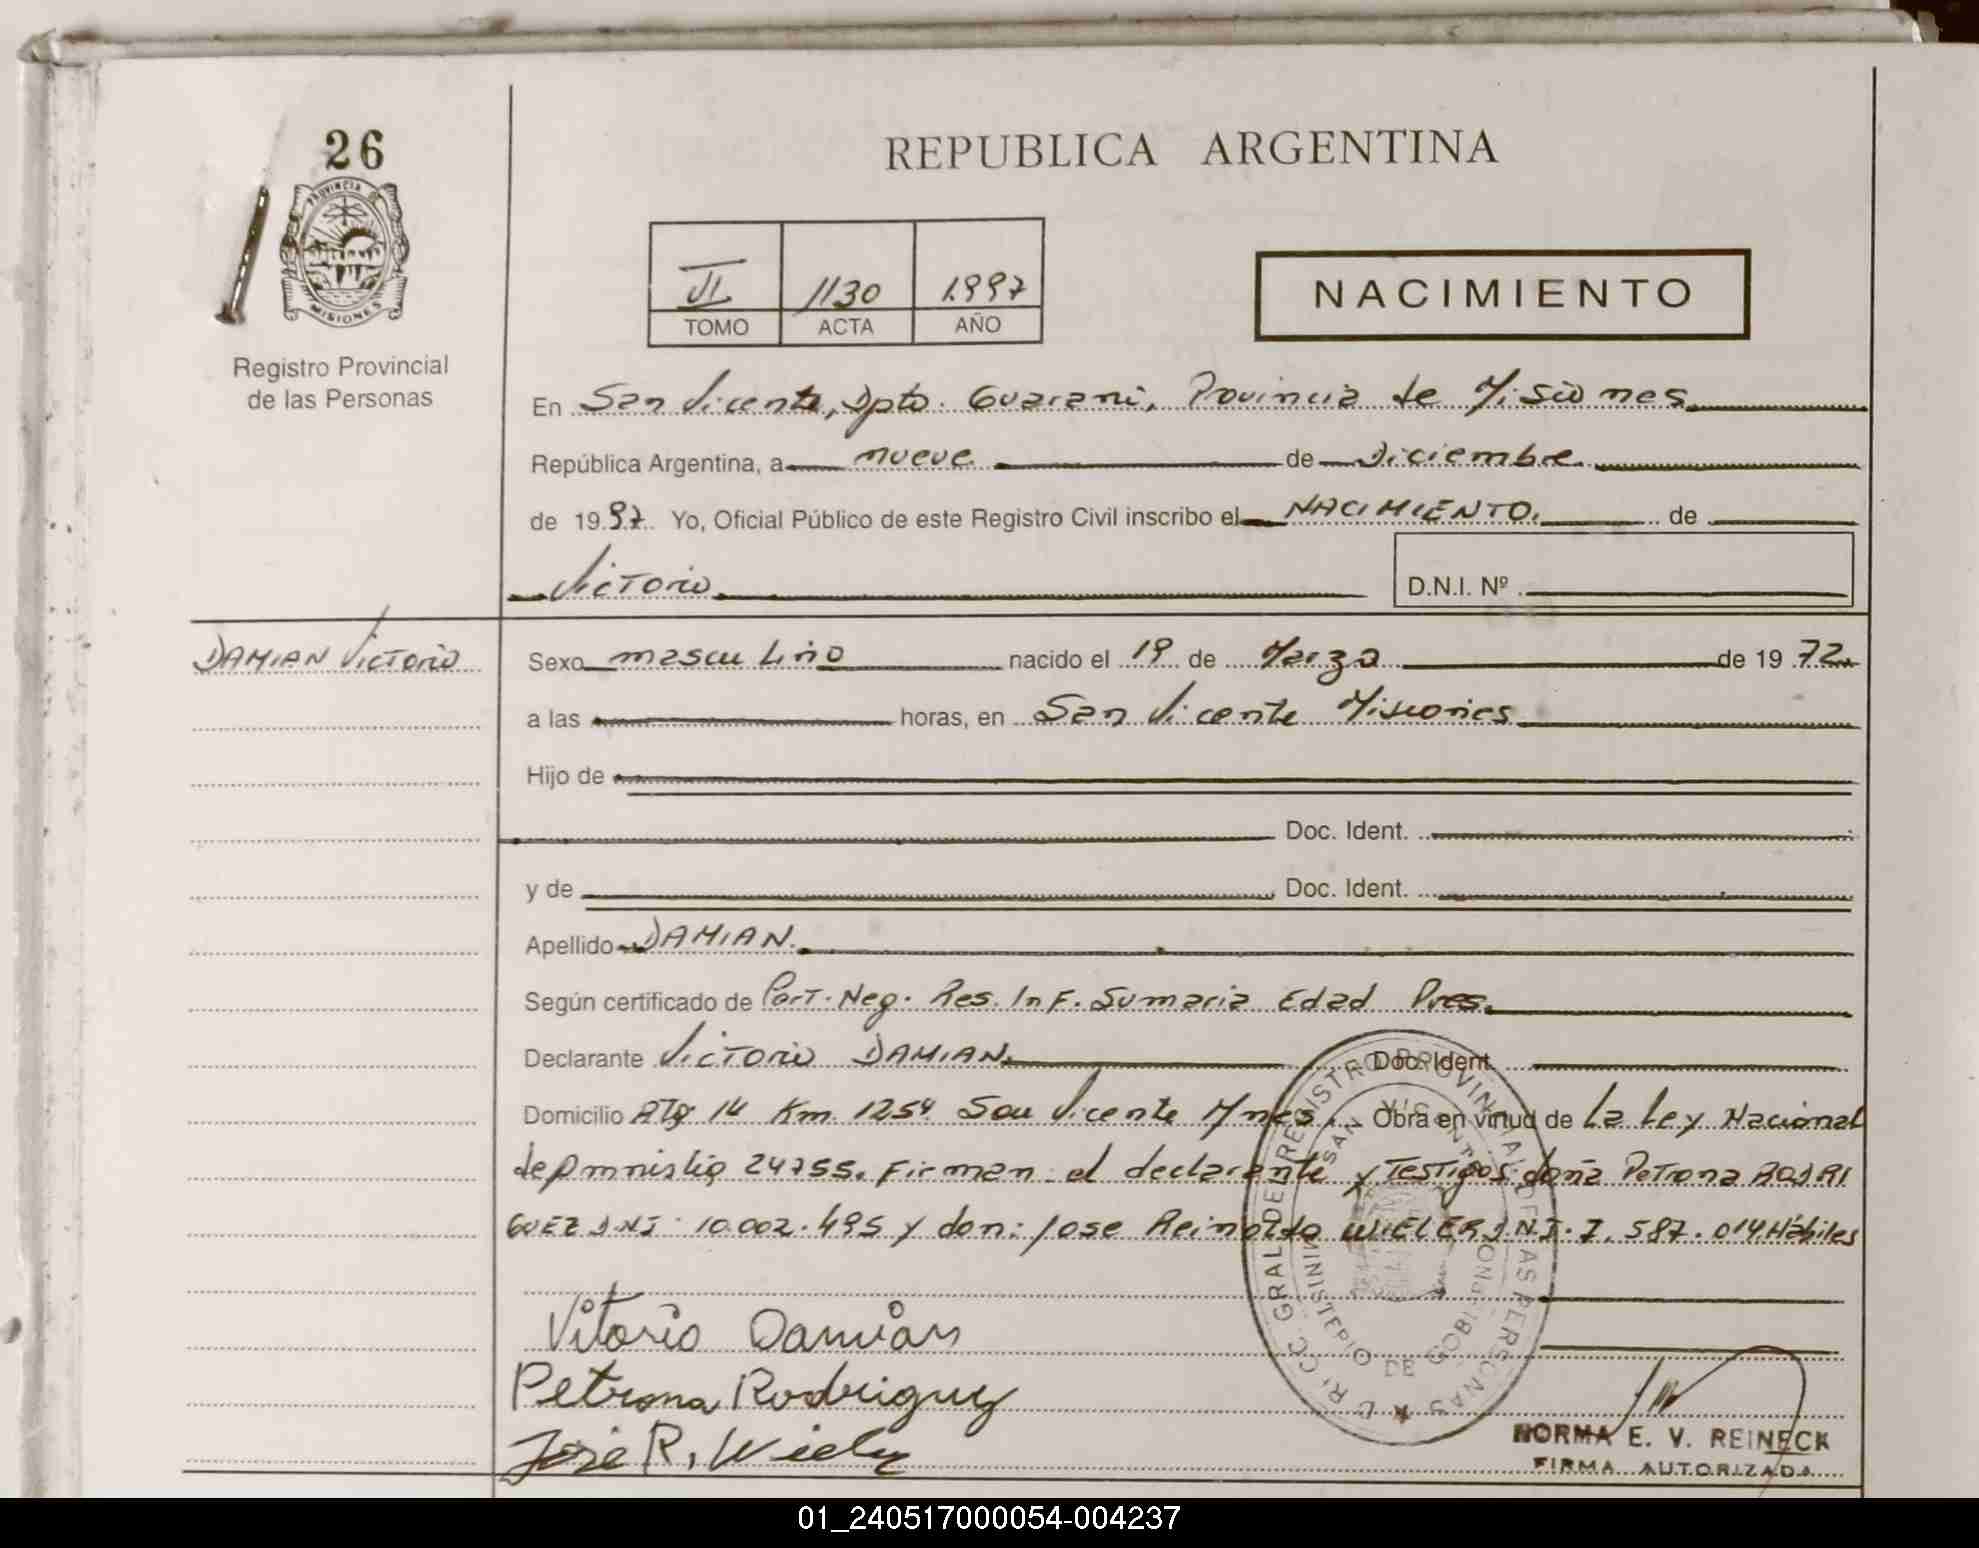 26
PROVINCIA DE
MISIONES
Registro Provincial
de las Personas
REPUBLICA ARGENTINA
VI 1130 1997
TOMO ACTA AÑO
NACIMIENTO
En San Vicente, Dpto. Guarani, Provincia de Misiones
República Argentina, a nueve de Diciembre
de 1997. Yo, Oficial Público de este Registro Civil inscribo el NACIMIENTO. de
Victorio
D.N.I. Nº
DAMIAN Victorio
Sexo masculino nacido el 19 de Marzo de 1972
a las horas, en San Vicente Misiones
Hijo de
Doc. Ident.
y de Doc. Ident.
Apellido DAMIAN.
Según certificado de Part. Neg. Res. Inf. Sumaria Edad Pres.
Declarante Victorio DAMIAN. Doc. Ident.
Domicilio Rta 14 Km. 1254 San Vicente Mnes. Obra en virtud de La Ley Nacional
de Amnistia 24755. Firman: el declarante y Testigos: doña Petrona RODRI
GUEZ D.N.I. 10.002.495 y don: Jose Reinoldo WIELER D.N.I. 7.587.014. Hábiles
Vitorio Damian
Petrona Rodriguez
José R. Wieler
REGISTRO PROVINCIAL DE LAS PERSONAS
SAN VICENTE
MINISTERIO DE GOBIERNO
NORMA E. V. REINECK
FIRMA AUTORIZADA
01_240517000054-004237